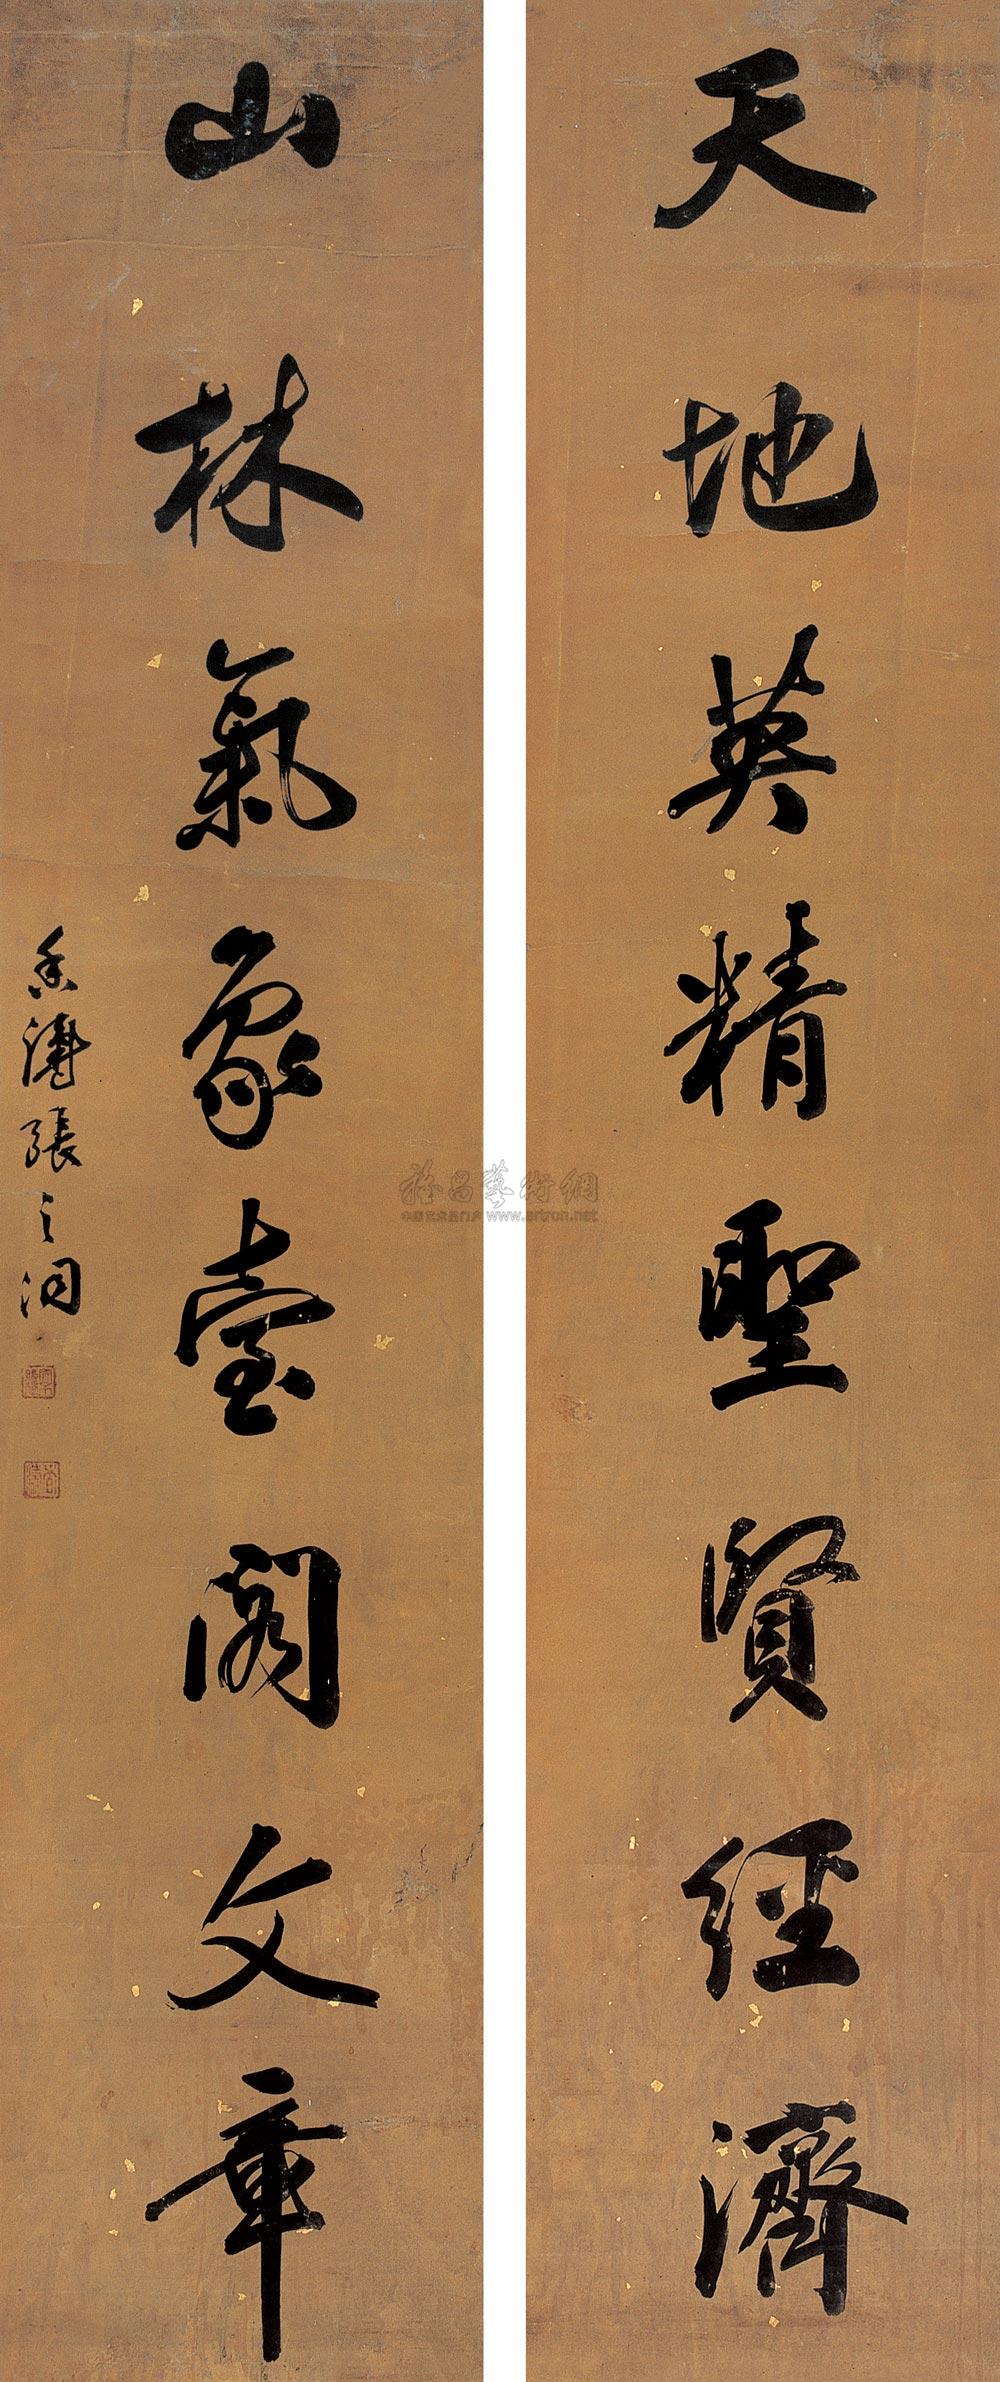 天地英精聖賢經濟
山林氣象臺閣文章
香濤張之洞
雅昌藝術網
中国艺术品门户 www.artron.net